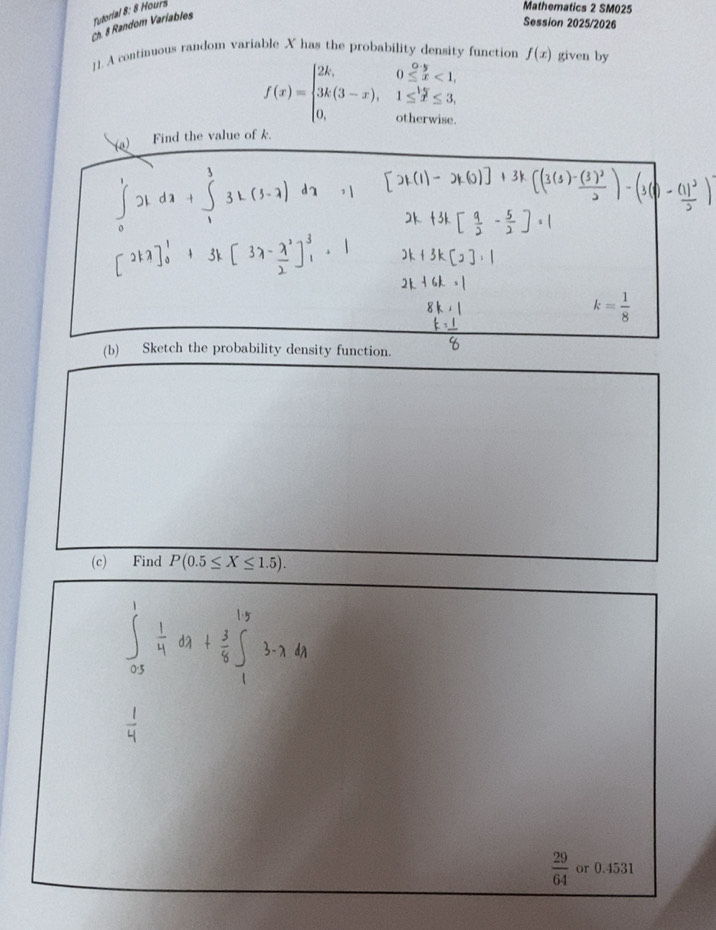 Tutorial 8: 8 Hours
Ch. 8 Random Variables
Mathematics 2 SM025
Session 2025/2026
11. A continuous random variable X has the probability density function f(x) given by
f(x) = { 2k, 0 ≤ x < 1,
0.5
3k(3 − x), 1 ≤ x ≤ 3,
1.5
0, otherwise.
(a) Find the value of k.
∫₀¹ 2k dx + ∫₁³ 3k(3-x) dx = 1
[2kx]₀¹ + 3k[3x - x²/2]₁³ = 1
[2k(1) - 2k(0)] + 3k[(3(3) - (3)²/2) - (3(1) - (1)²/2)
2k + 3k[9/2 - 5/2] = 1
2k + 3k[2] = 1
2k + 6k = 1
8k = 1
k = 1/8
k = 1/8
(b) Sketch the probability density function.
(c) Find P(0.5 ≤ X ≤ 1.5).
∫₀.₅¹ 1/4 dx + 3/8 ∫₁^1.5 3-x dx
1/4
29/64 or 0.4531